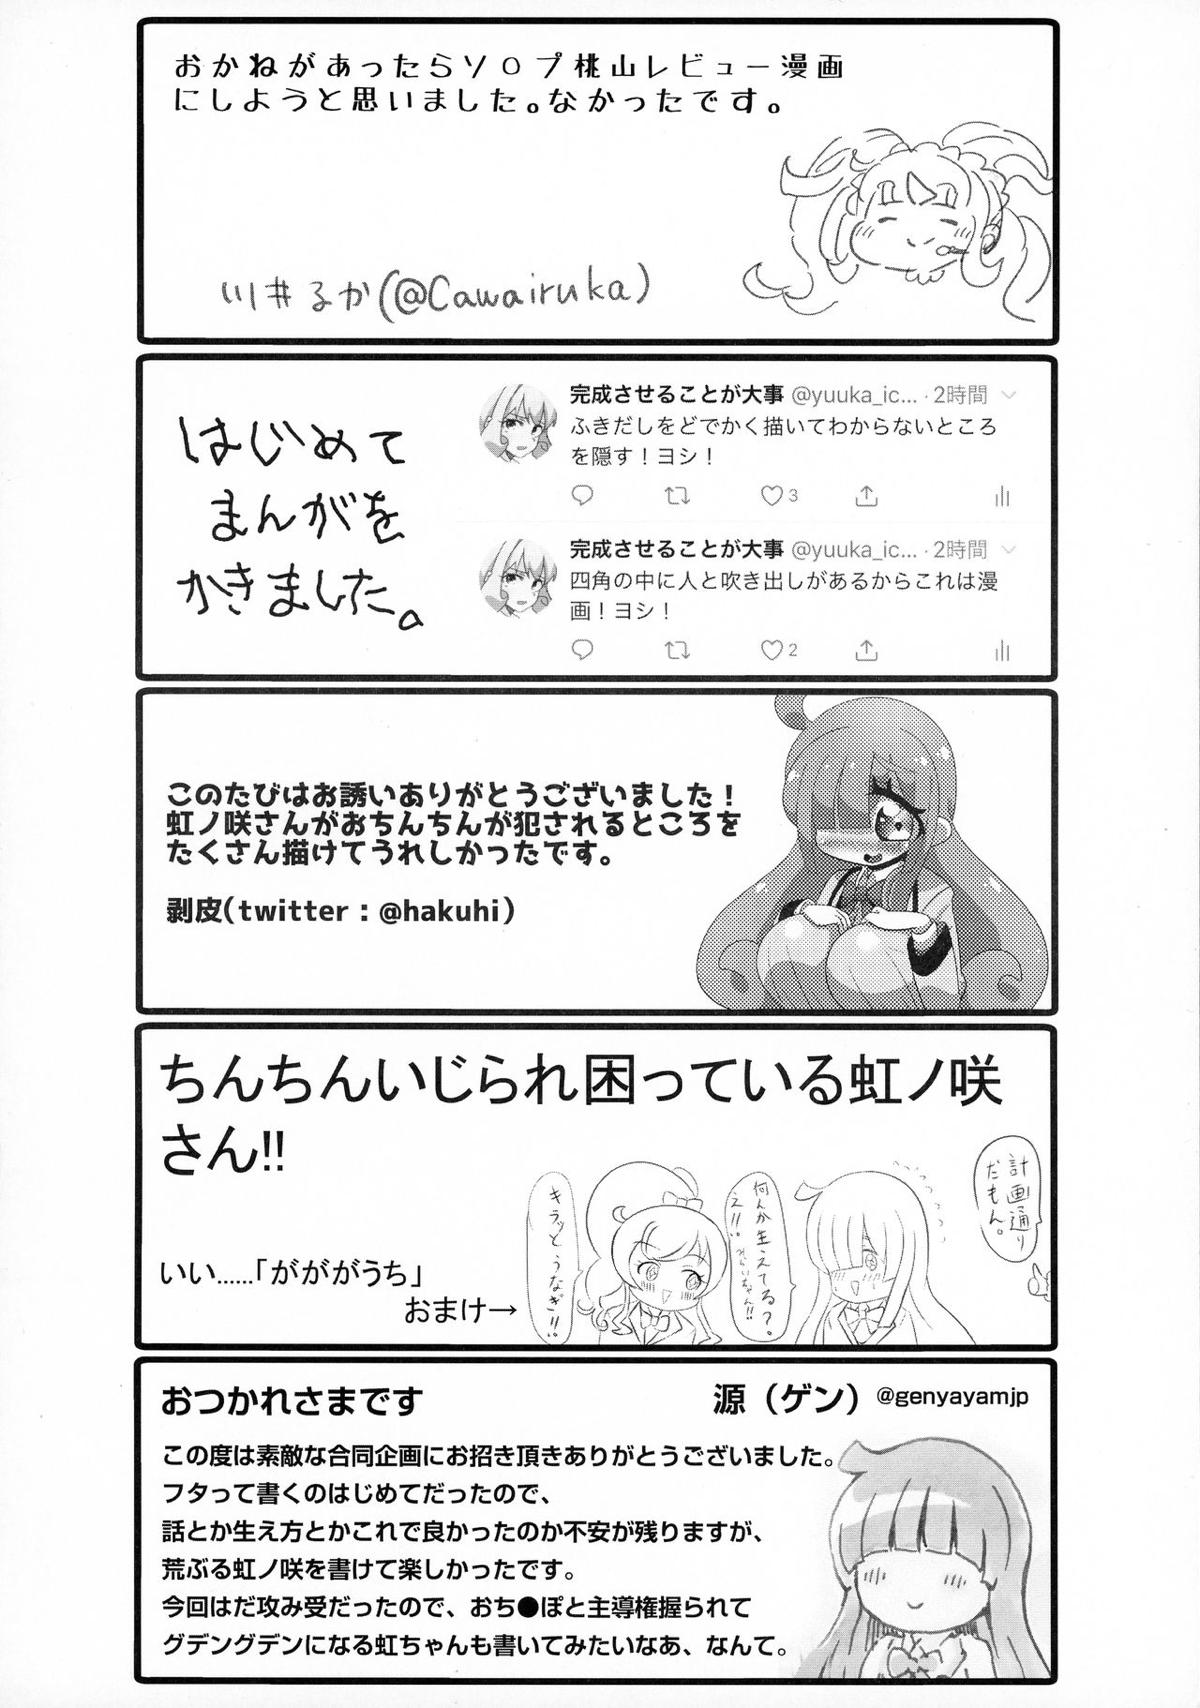 おかねがあったらソOプ桃山レビュー漫画
にしようと思いました。なかったです。
川井るか(@Cawairuka)
はじめて
まんがを
かきました。
完成させることが大事 @yuuka_ic... · 2時間
ふきだしをどでかく描いてわからないところ
を隠す！ヨシ！
3
完成させることが大事 @yuuka_ic... · 2時間
四角の中に人と吹き出しがあるからこれは漫
画！ヨシ！
2
このたびはお誘いありがとうございました！
虹ノ咲さんがおちんちんが犯されるところを
たくさん描けてうれしかったです。
剥皮(twitter：@hakuhi)
ちんちんいじられ困っている虹ノ咲
さん!!
計画通り
だもん。
何んか生えてる？。
え!!
みらいちゃん!!
キラッと
うなぎ!!
いい……「がががうち」
おまけ→
おつかれさまです
源（ゲン）@genyayamjp
この度は素敵な合同企画にお招き頂きありがとうございました。
フタって書くのはじめてだったので、
話とか生え方とかこれで良かったのか不安が残りますが、
荒ぶる虹ノ咲を書けて楽しかったです。
今回はだ攻み受だったので、おち●ぽと主導権握られて
グデングデンになる虹ちゃんも書いてみたいなあ、なんて。